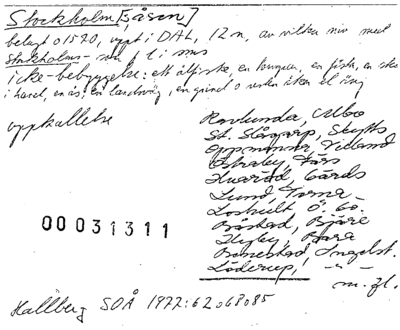 Stockholm [såsom]
belagt o 1520, uppt i DAL, 12 n, av vilken nio med
Stockholms- så l i sms
icke-bebyggelse: ett ålfiske, en kungsv, en fisk, en ska
i havet, en ås, en landsväg, en grind o resten åker el äng
uppkallelse
Ravlunda, Albo
St. Slågarp, Skytts
Oppmanna, Villand
Östraby, Färs
Huaröd, Gärds
Lund, Torna
Loshult Ö Gö
Båstad, Bjäre
Hyby, Bara
Benestad, Ingelst.
Löderup, -"-
m. fl.
00031311
Hallberg SOÅ 1972:62 o 68 o 85